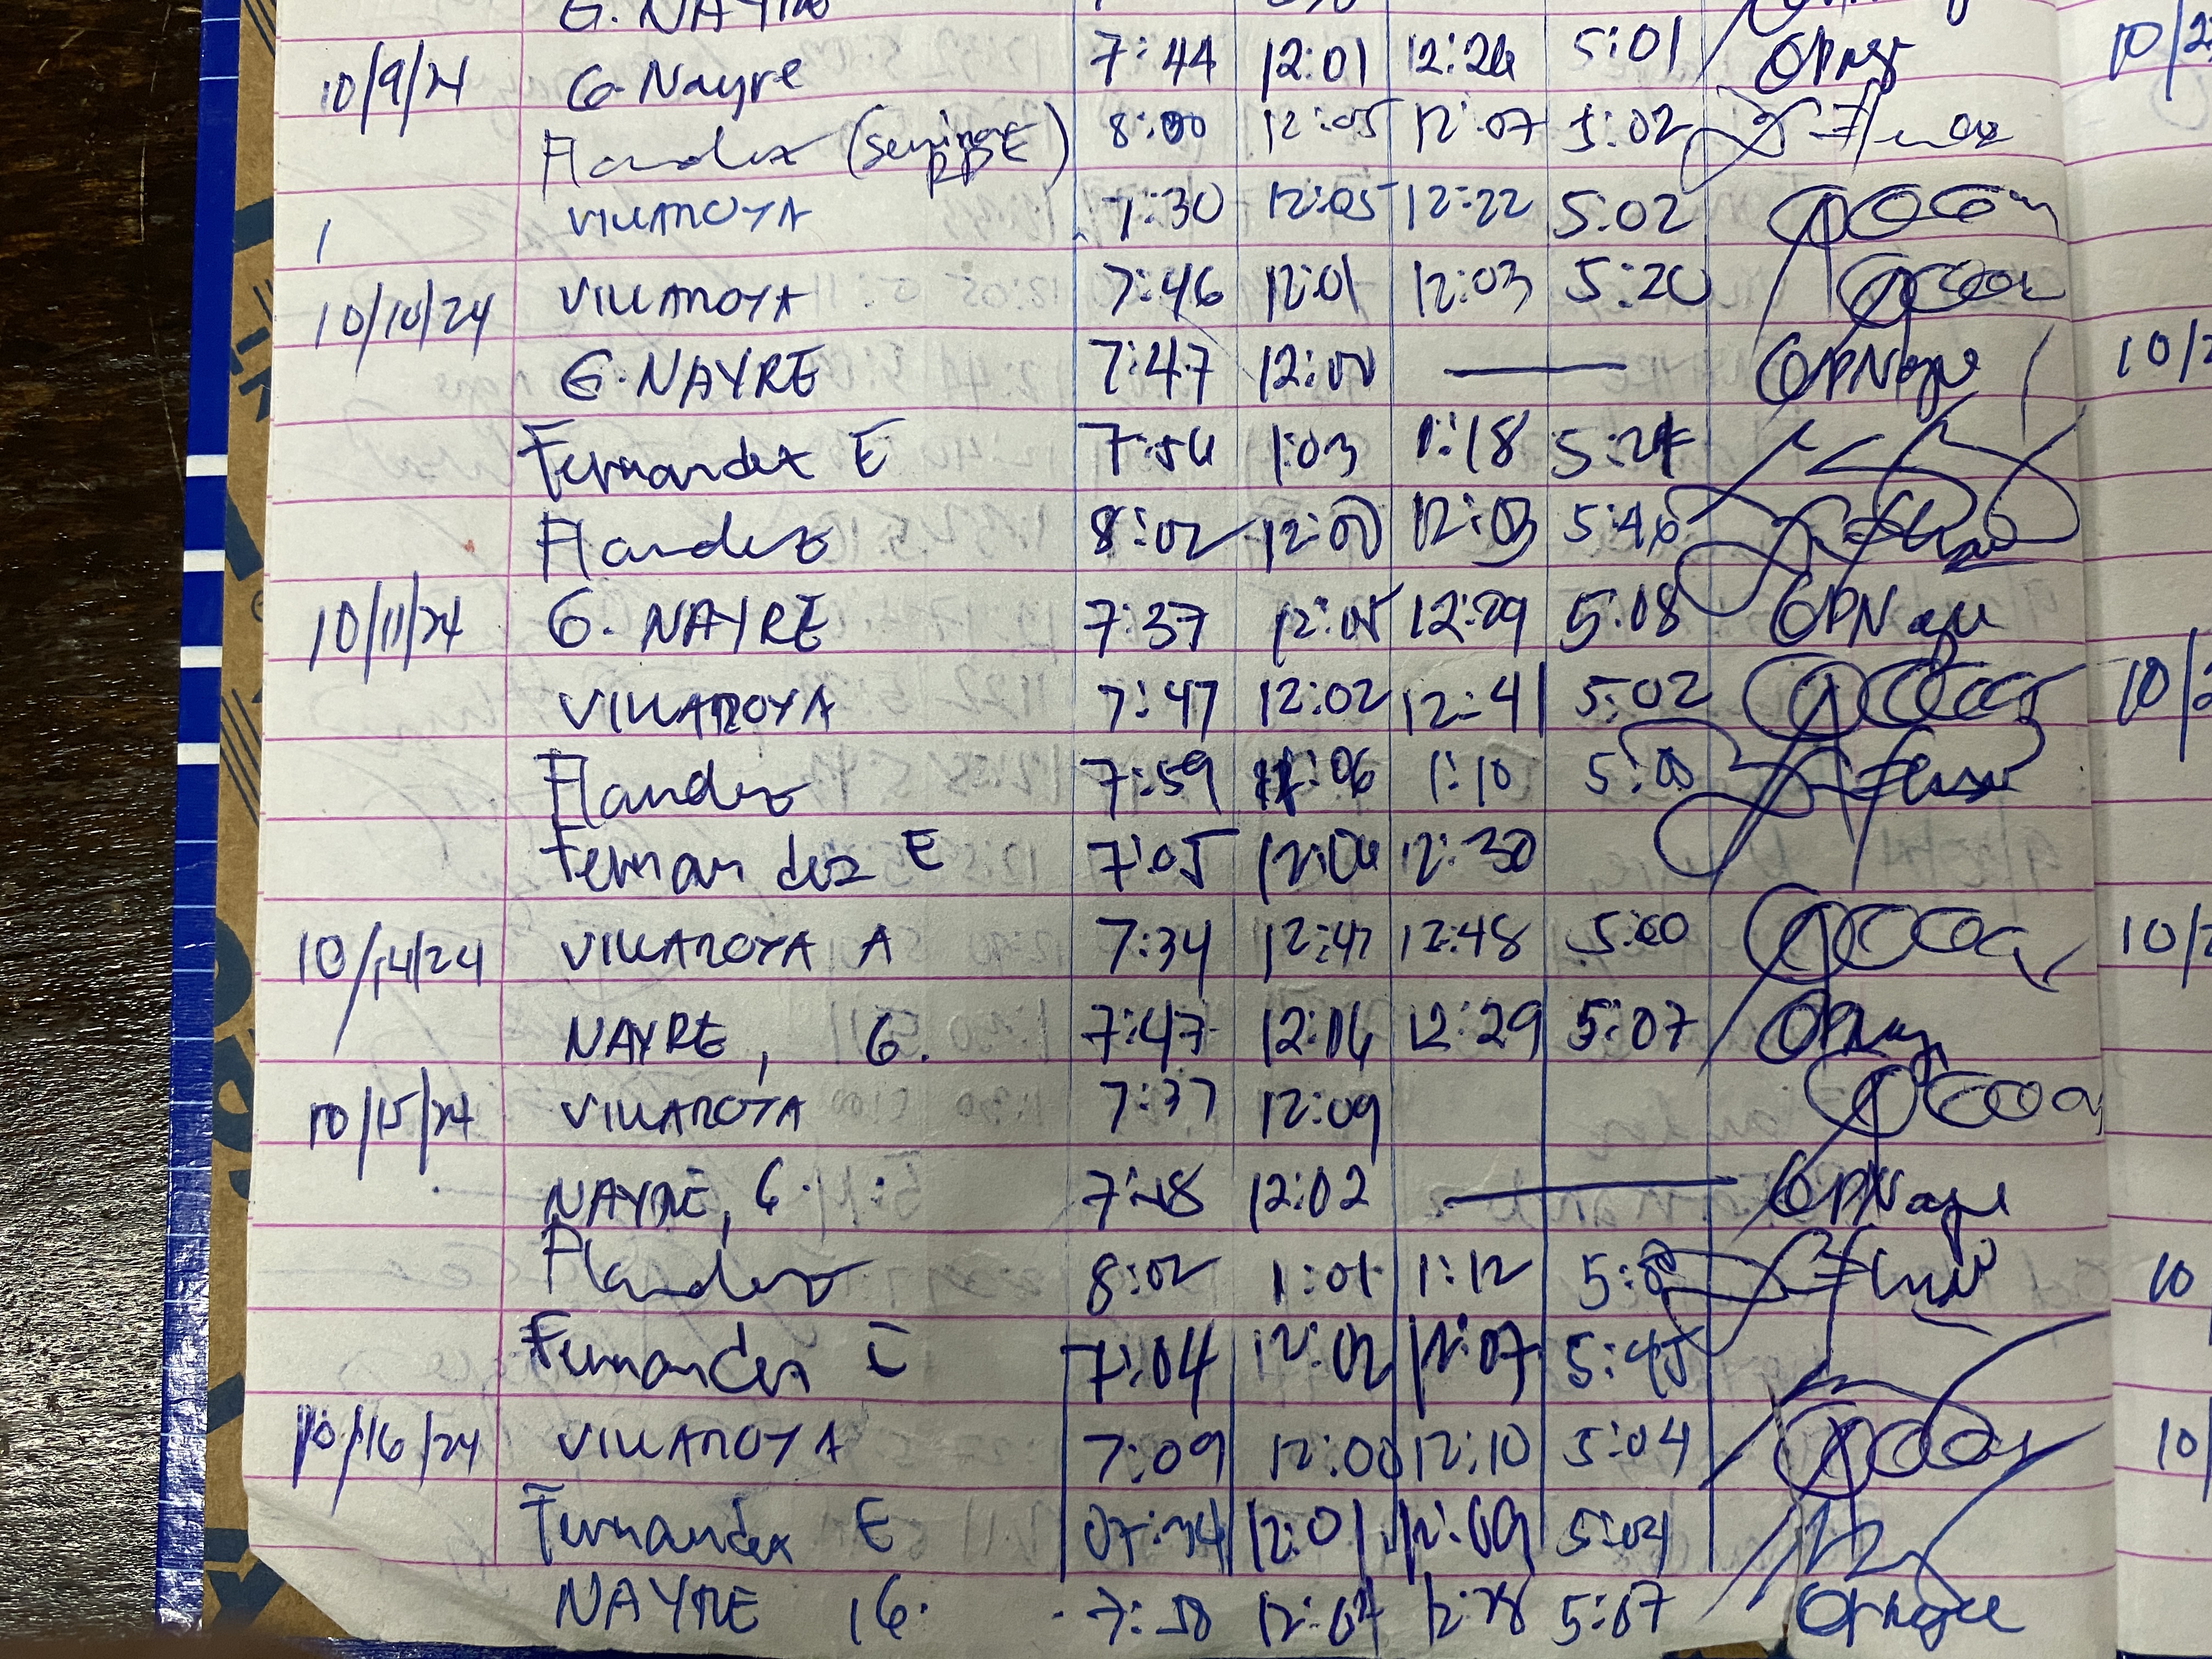 G. NAYRE
10/9/24 G. Nayre 7:44 12:01 12:26 5:01
Flandez (Seminar 8:00 12:05 12:07 5:02
VILLAROYA 7:30 12:05 12:22 5:02
10/10/24 VILLAROYA 7:46 12:01 12:03 5:20
G. NAYRE 7:47 12:00 — GPNayre
Fernandez E 7:54 1:03 1:18 5:24
Flandez 8:02 12:00 12:03 5:46
10/11/24 G. NAYRE 7:37 12:05 12:29 5:08 GPNayre
VILLAROYA 7:47 12:02 12:41 5:02
Flandez 7:59 12:06 1:10 5:00
Fernandez E 7:05 12:06 12:30
10/14/24 VILLAROYA A 7:34 12:47 12:48 5:00
NAYRE, G. 7:47 12:06 12:29 5:07
10/15/24 VILLAROYA 7:37 12:09
NAYRE, G. 7:48 12:02 — GPNayre
Flandez 8:02 1:01 1:12 5:00
Fernandez E 7:04 12:02 12:07 5:45
10/16/24 VILLAROYA 7:09 12:00 12:10 5:04
Fernandez E 07:34 12:01 12:09 5:04
NAYRE G. 7:58 12:07 12:28 5:07 GPNayre